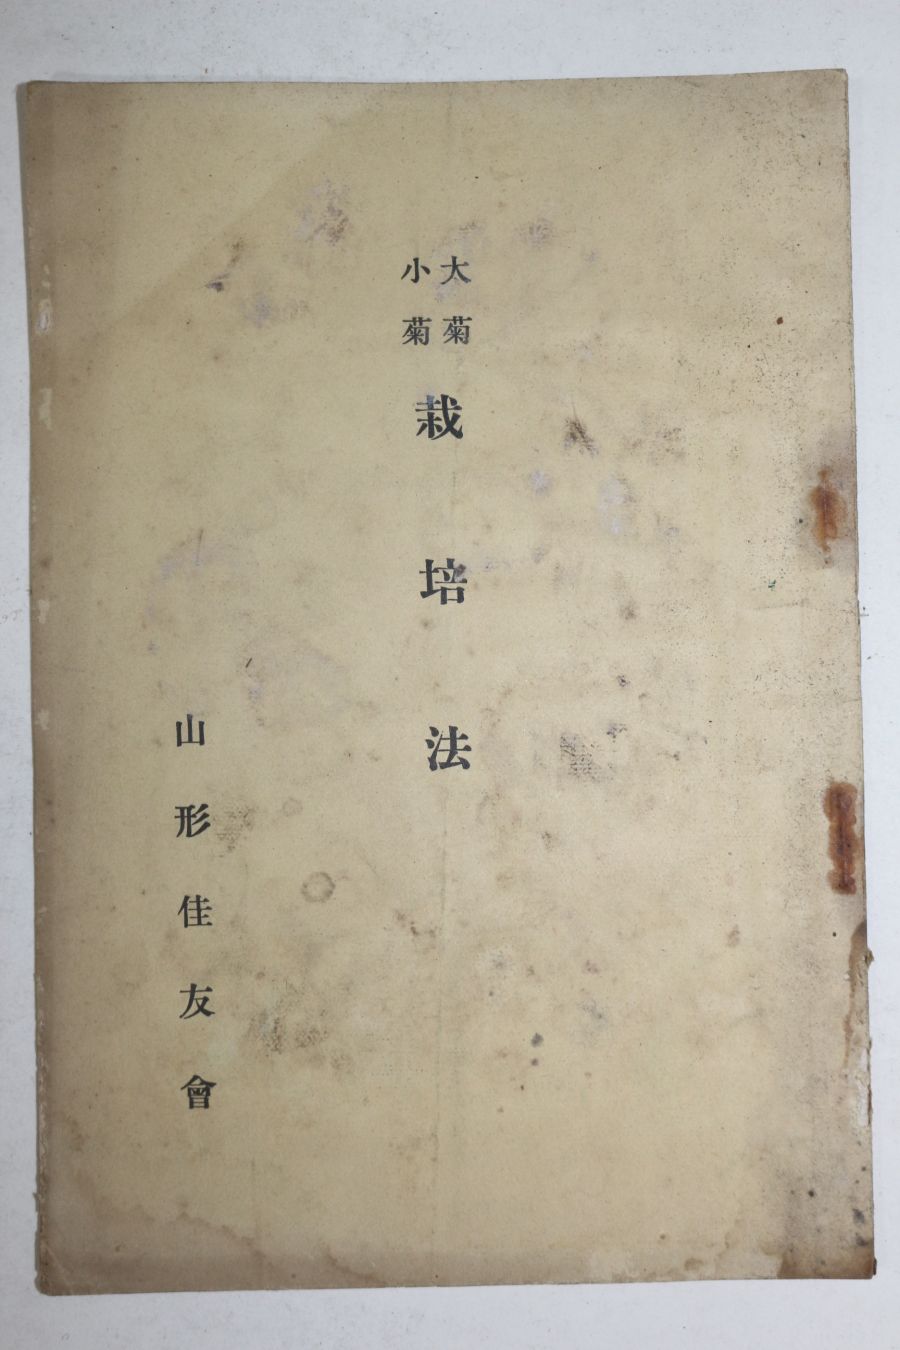 大菊
小菊
栽培法
山形佳友會